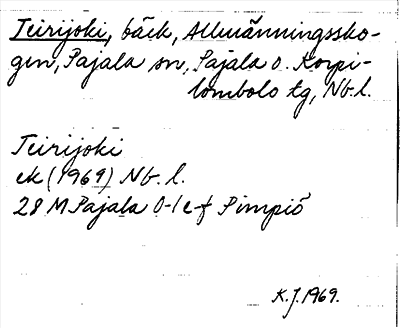 Teirijoki, bäck, Allmänningssko-
gen, Pajala sn, Pajala o. Korpi-
lombolo tg, Nb. l.
Teirijoki
ek (1969) Nb. l.
28 M Pajala 0-1 e-f Pimpiö
K.J. 1969.